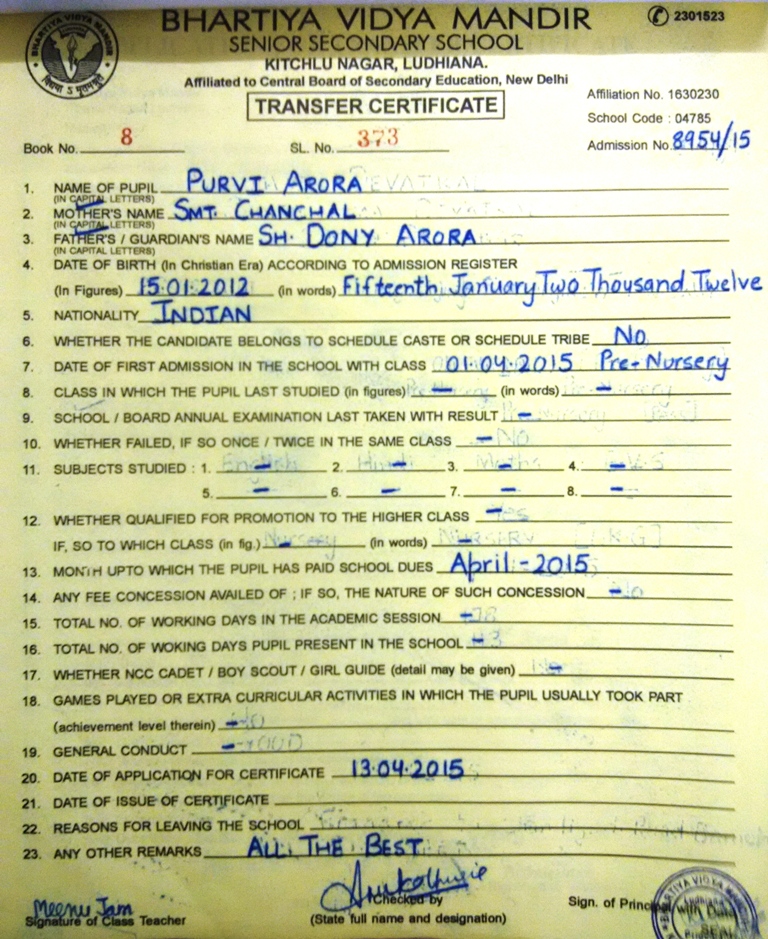 BHARTIYA VIDYA MANDIR
2301523
SENIOR SECONDARY SCHOOL
KITCHLU NAGAR, LUDHIANA.
Affiliated to Central Board of Secondary Education, New Delhi
TRANSFER CERTIFICATE
Affiliation No. 1630230
School Code : 04785
Book No. 8 SL. No. 373 Admission No. 8954/15
1. NAME OF PUPIL PURVI ARORA
(IN CAPITAL LETTERS)
2. MOTHER'S NAME SMT. CHANCHAL
(IN CAPITAL LETTERS)
3. FATHER'S / GUARDIAN'S NAME SH. DONY ARORA
(IN CAPITAL LETTERS)
4. DATE OF BIRTH (In Christian Era) ACCORDING TO ADMISSION REGISTER
(In Figures) 15.01.2012 (in words) Fifteenth January Two Thousand Twelve
5. NATIONALITY INDIAN
6. WHETHER THE CANDIDATE BELONGS TO SCHEDULE CASTE OR SCHEDULE TRIBE No
7. DATE OF FIRST ADMISSION IN THE SCHOOL WITH CLASS 01.04.2015 Pre-Nursery
8. CLASS IN WHICH THE PUPIL LAST STUDIED (in figures) - (in words) -
9. SCHOOL / BOARD ANNUAL EXAMINATION LAST TAKEN WITH RESULT -
10. WHETHER FAILED, IF SO ONCE / TWICE IN THE SAME CLASS -
11. SUBJECTS STUDIED : 1. - 2. - 3. - 4. -
5. - 6. - 7. - 8. -
12. WHETHER QUALIFIED FOR PROMOTION TO THE HIGHER CLASS -
IF, SO TO WHICH CLASS (in fig.) - (in words) -
13. MONTH UPTO WHICH THE PUPIL HAS PAID SCHOOL DUES April - 2015
14. ANY FEE CONCESSION AVAILED OF ; IF SO, THE NATURE OF SUCH CONCESSION -
15. TOTAL NO. OF WORKING DAYS IN THE ACADEMIC SESSION -
16. TOTAL NO. OF WOKING DAYS PUPIL PRESENT IN THE SCHOOL -
17. WHETHER NCC CADET / BOY SCOUT / GIRL GUIDE (detail may be given) -
18. GAMES PLAYED OR EXTRA CURRICULAR ACTIVITIES IN WHICH THE PUPIL USUALLY TOOK PART
(achievement level therein) -
19. GENERAL CONDUCT -
20. DATE OF APPLICATION FOR CERTIFICATE 13.04.2015
21. DATE OF ISSUE OF CERTIFICATE
22. REASONS FOR LEAVING THE SCHOOL
23. ANY OTHER REMARKS ALL THE BEST
Meenu Jain
Signature of Class Teacher
Checked by
(State full name and designation)
Sign. of Principal with Date